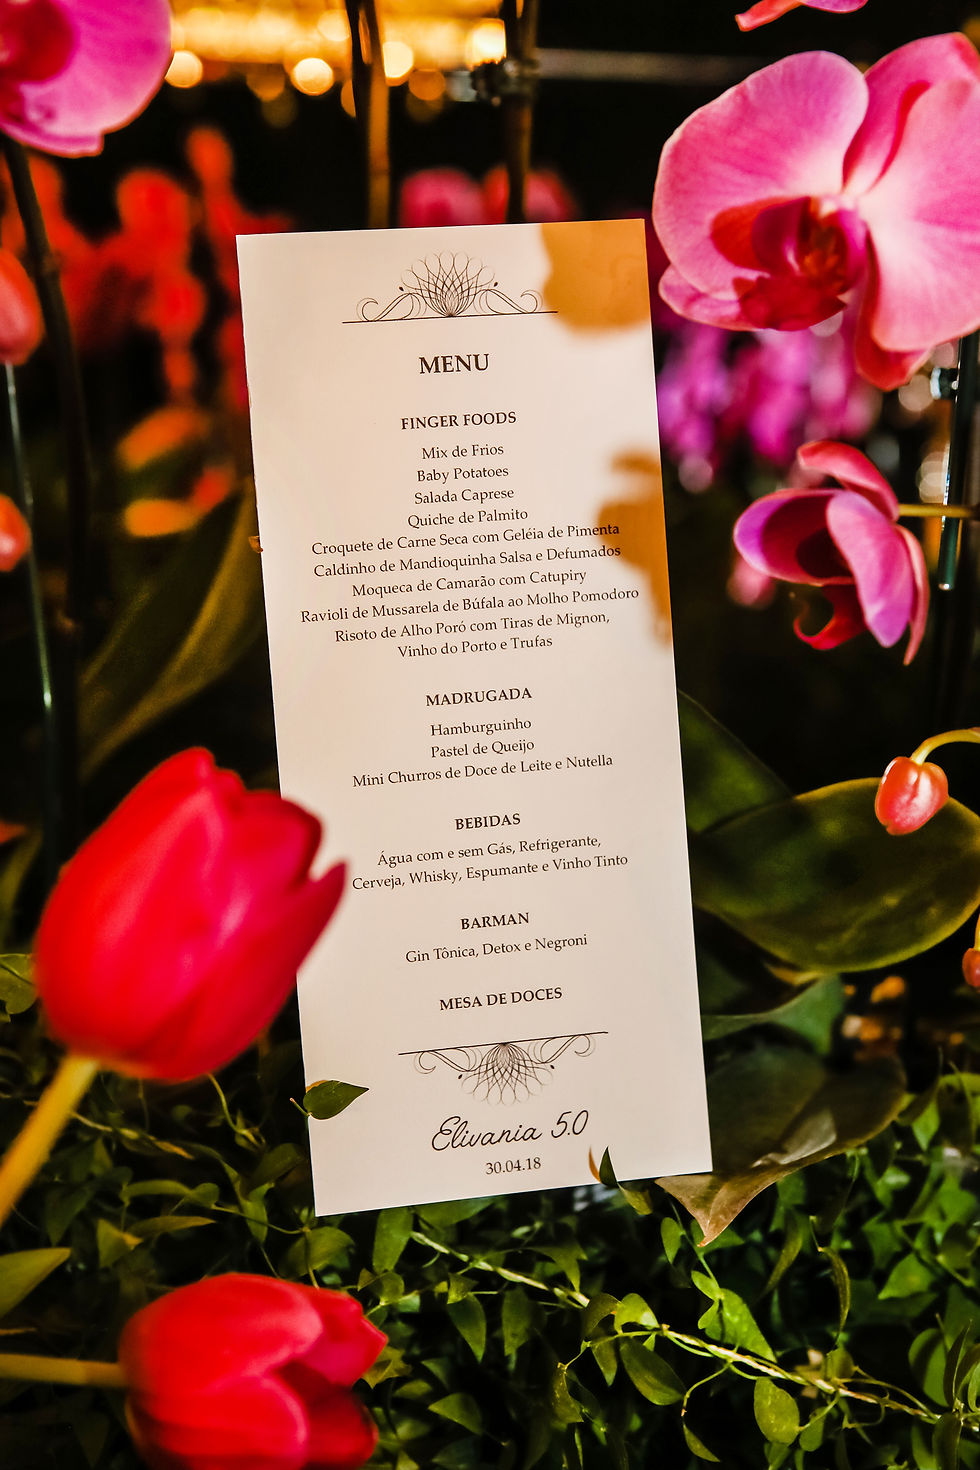 MENU
FINGER FOODS
Mix de Frios
Baby Potatoes
Salada Caprese
Quiche de Palmito
Croquete de Carne Seca com Geléia de Pimenta
Caldinho de Mandioquinha Salsa e Defumados
Moqueca de Camarão com Catupiry
Ravioli de Mussarela de Búfala ao Molho Pomodoro
Risoto de Alho Poró com Tiras de Mignon,
Vinho do Porto e Trufas
MADRUGADA
Hamburguinho
Pastel de Queijo
Mini Churros de Doce de Leite e Nutella
BEBIDAS
Água com e sem Gás, Refrigerante,
Cerveja, Whisky, Espumante e Vinho Tinto
BARMAN
Gin Tônica, Detox e Negroni
MESA DE DOCES
Elivania 5.0
30.04.18